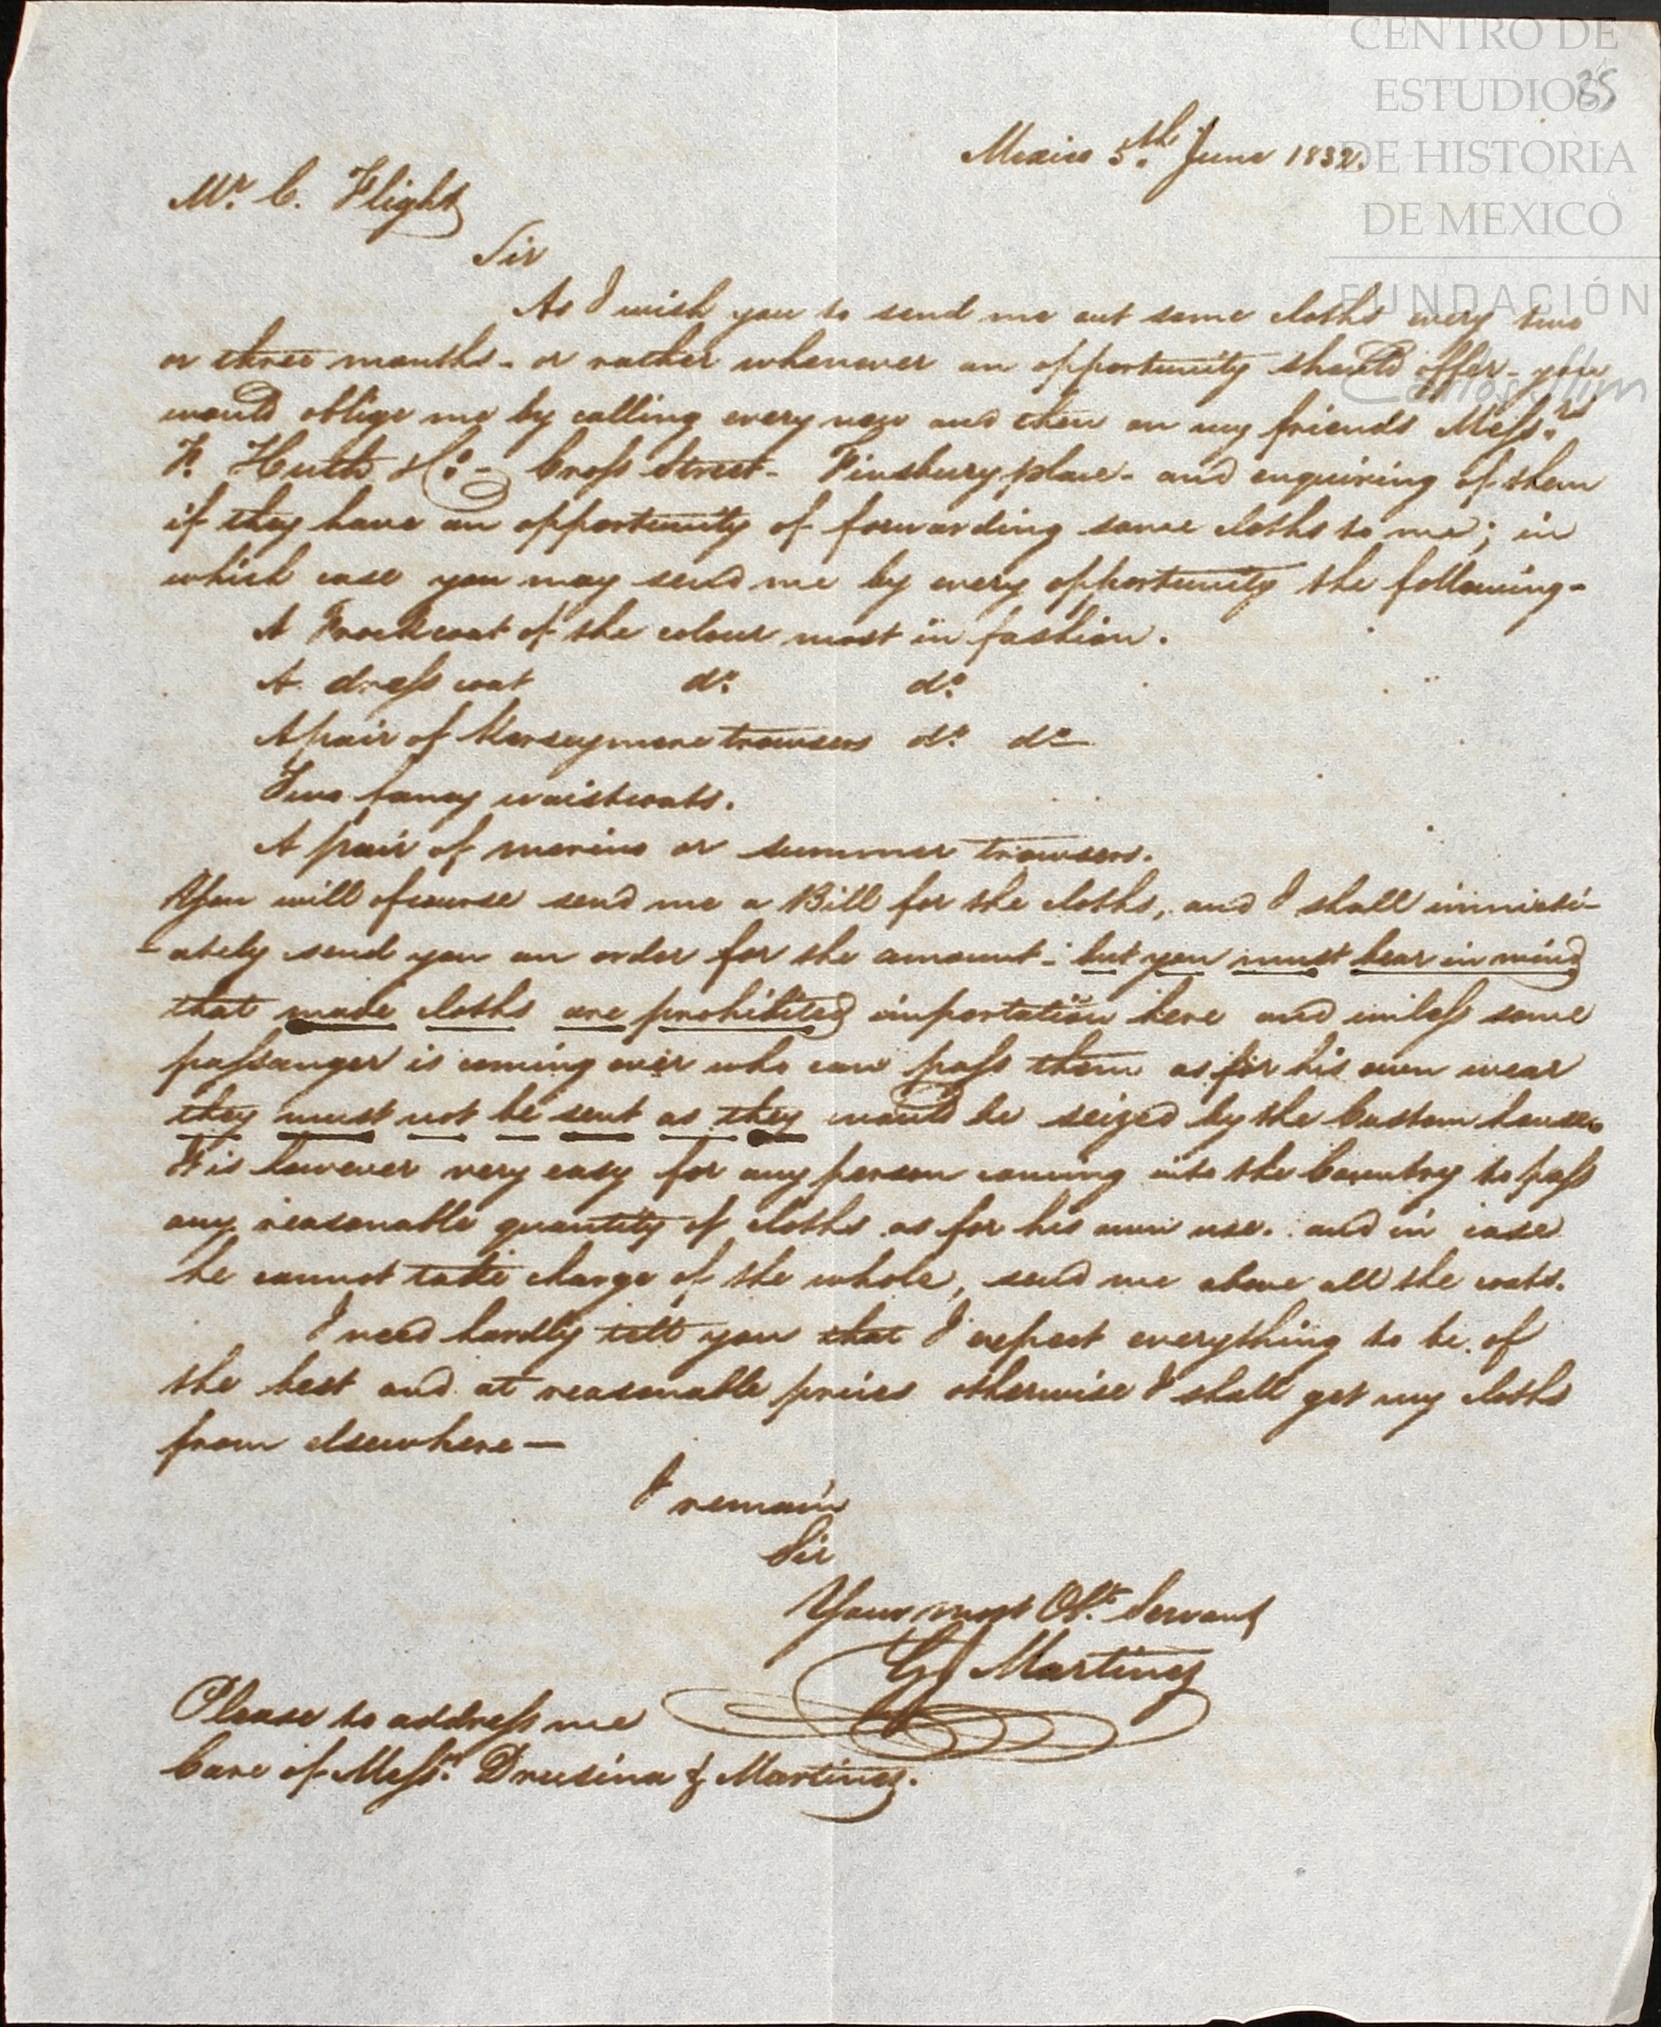 CENTRO DE
ESTUDIOS
DE HISTORIA
DE MEXICO
FUNDACIÓN
Carlos Slim
35
Mexico 5th. June 1832.
Mr. C. Flight
Sir
As I wish you to send me out some cloths every two
or three months - or rather whenever an opportunity should offer - you
would oblige me by calling every now and then on my friends Messrs.
F. Huth & Co. - Cross Street - Finsbury place - and enquiring of them
if they have an opportunity of forwarding some cloths to me; in
which case you may send me by every opportunity the following -
A Frock coat of the colour most in fashion.
A dress coat do. do.
A pair of Kerseymere trowsers do. do
Two fancy waistcoats.
A pair of merino or summer trowsers.
You will of course send me a Bill for the cloths, and I shall immedi-
-ately send you an order for the amount - but you must bear in mind
that made cloths are prohibited importation here and unless some
passanger is coming over who can pass them as for his own wear
they must not be sent as they would be seized by the Custom house.
It is however very easy for any person coming into the Country to pass
any reasonable quantity of cloths as for his own use. and in case
he cannot take charge of the whole, send me above all the coats.
I need hardly tell you that I expect everything to be of
the best and at reasonable prices otherwise I shall get my cloths
from elsewhere —
I remain
Sir
Your most Obt. Servant
G J Martinez
Please to address me
Care of Messrs. Drusina & Martinez.